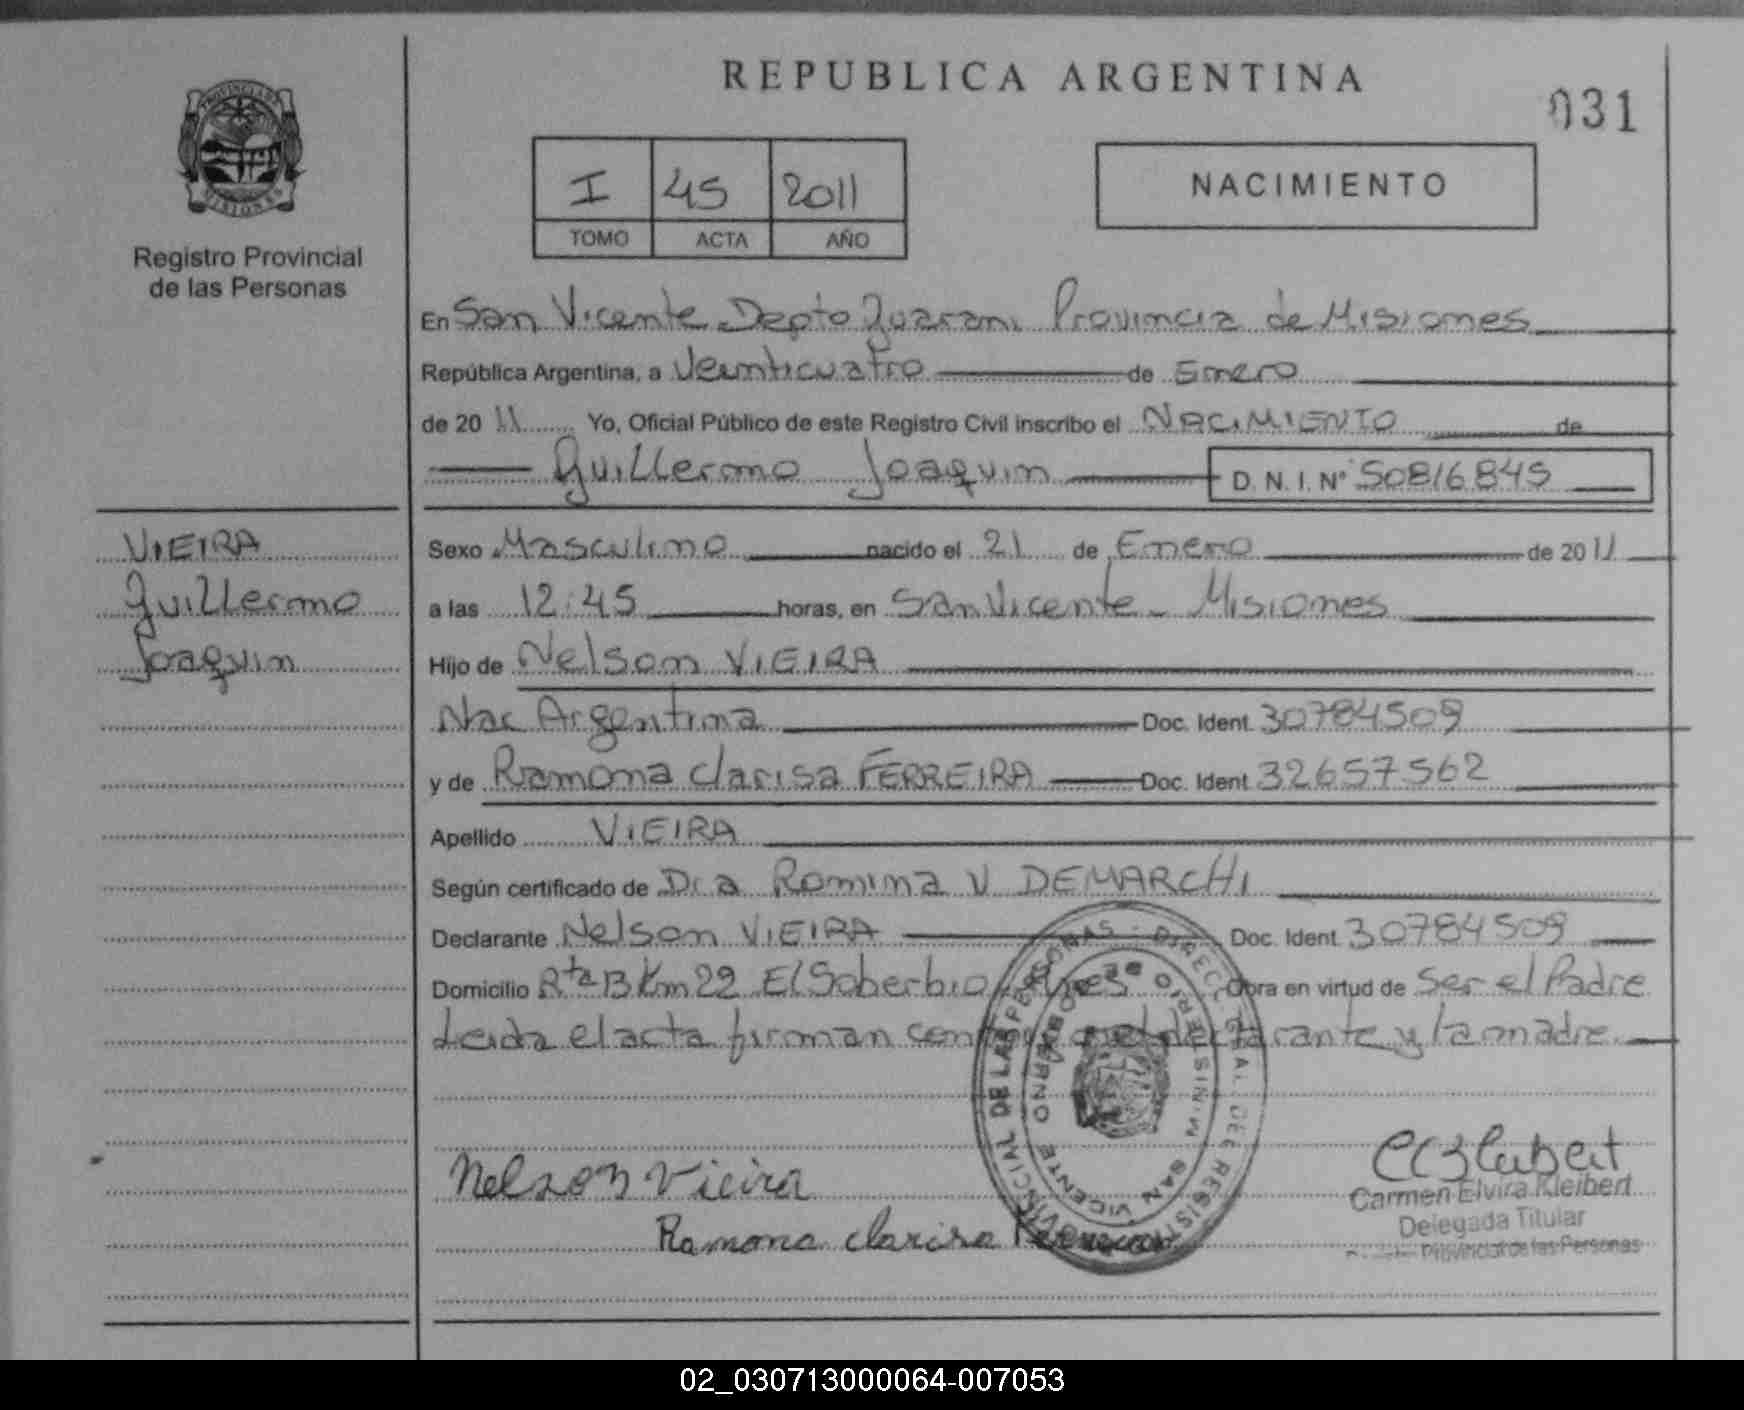 REPUBLICA ARGENTINA
031
PROVINCIA DE
MISIONES
Registro Provincial
de las Personas
I 45 2011
TOMO ACTA AÑO
NACIMIENTO
En San Vicente Depto Guarani Provincia de Misiones
República Argentina, a Veinticuatro de Enero
de 2011 Yo, Oficial Público de este Registro Civil inscribo el NACIMIENTO de
Guillermo Joaquin D. N. I. Nº 50816845
VIEIRA
Guillermo
Joaquin
Sexo Masculino nacido el 21 de Enero de 2011
a las 12:45 horas, en San Vicente - Misiones
Hijo de Nelson VIEIRA
Nac Argentina Doc. Ident. 30784509
y de Ramona Clarisa FERREIRA Doc. Ident. 32657562
Apellido VIEIRA
Según certificado de Dra Romina V DEMARCHI
Declarante Nelson VIEIRA Doc. Ident. 30784509
Domicilio Rta 13 Km 22 El Soberbio Mnes Obra en virtud de Ser el Padre
Leida el acta firman conmigo el declarante y la madre.
Nelson Vieira
Ramona Clarisa Ferreira
Carmen Elvira Kleibert
Delegada Titular
Provincial de las Personas
SAN VICENTE
02_030713000064-007053